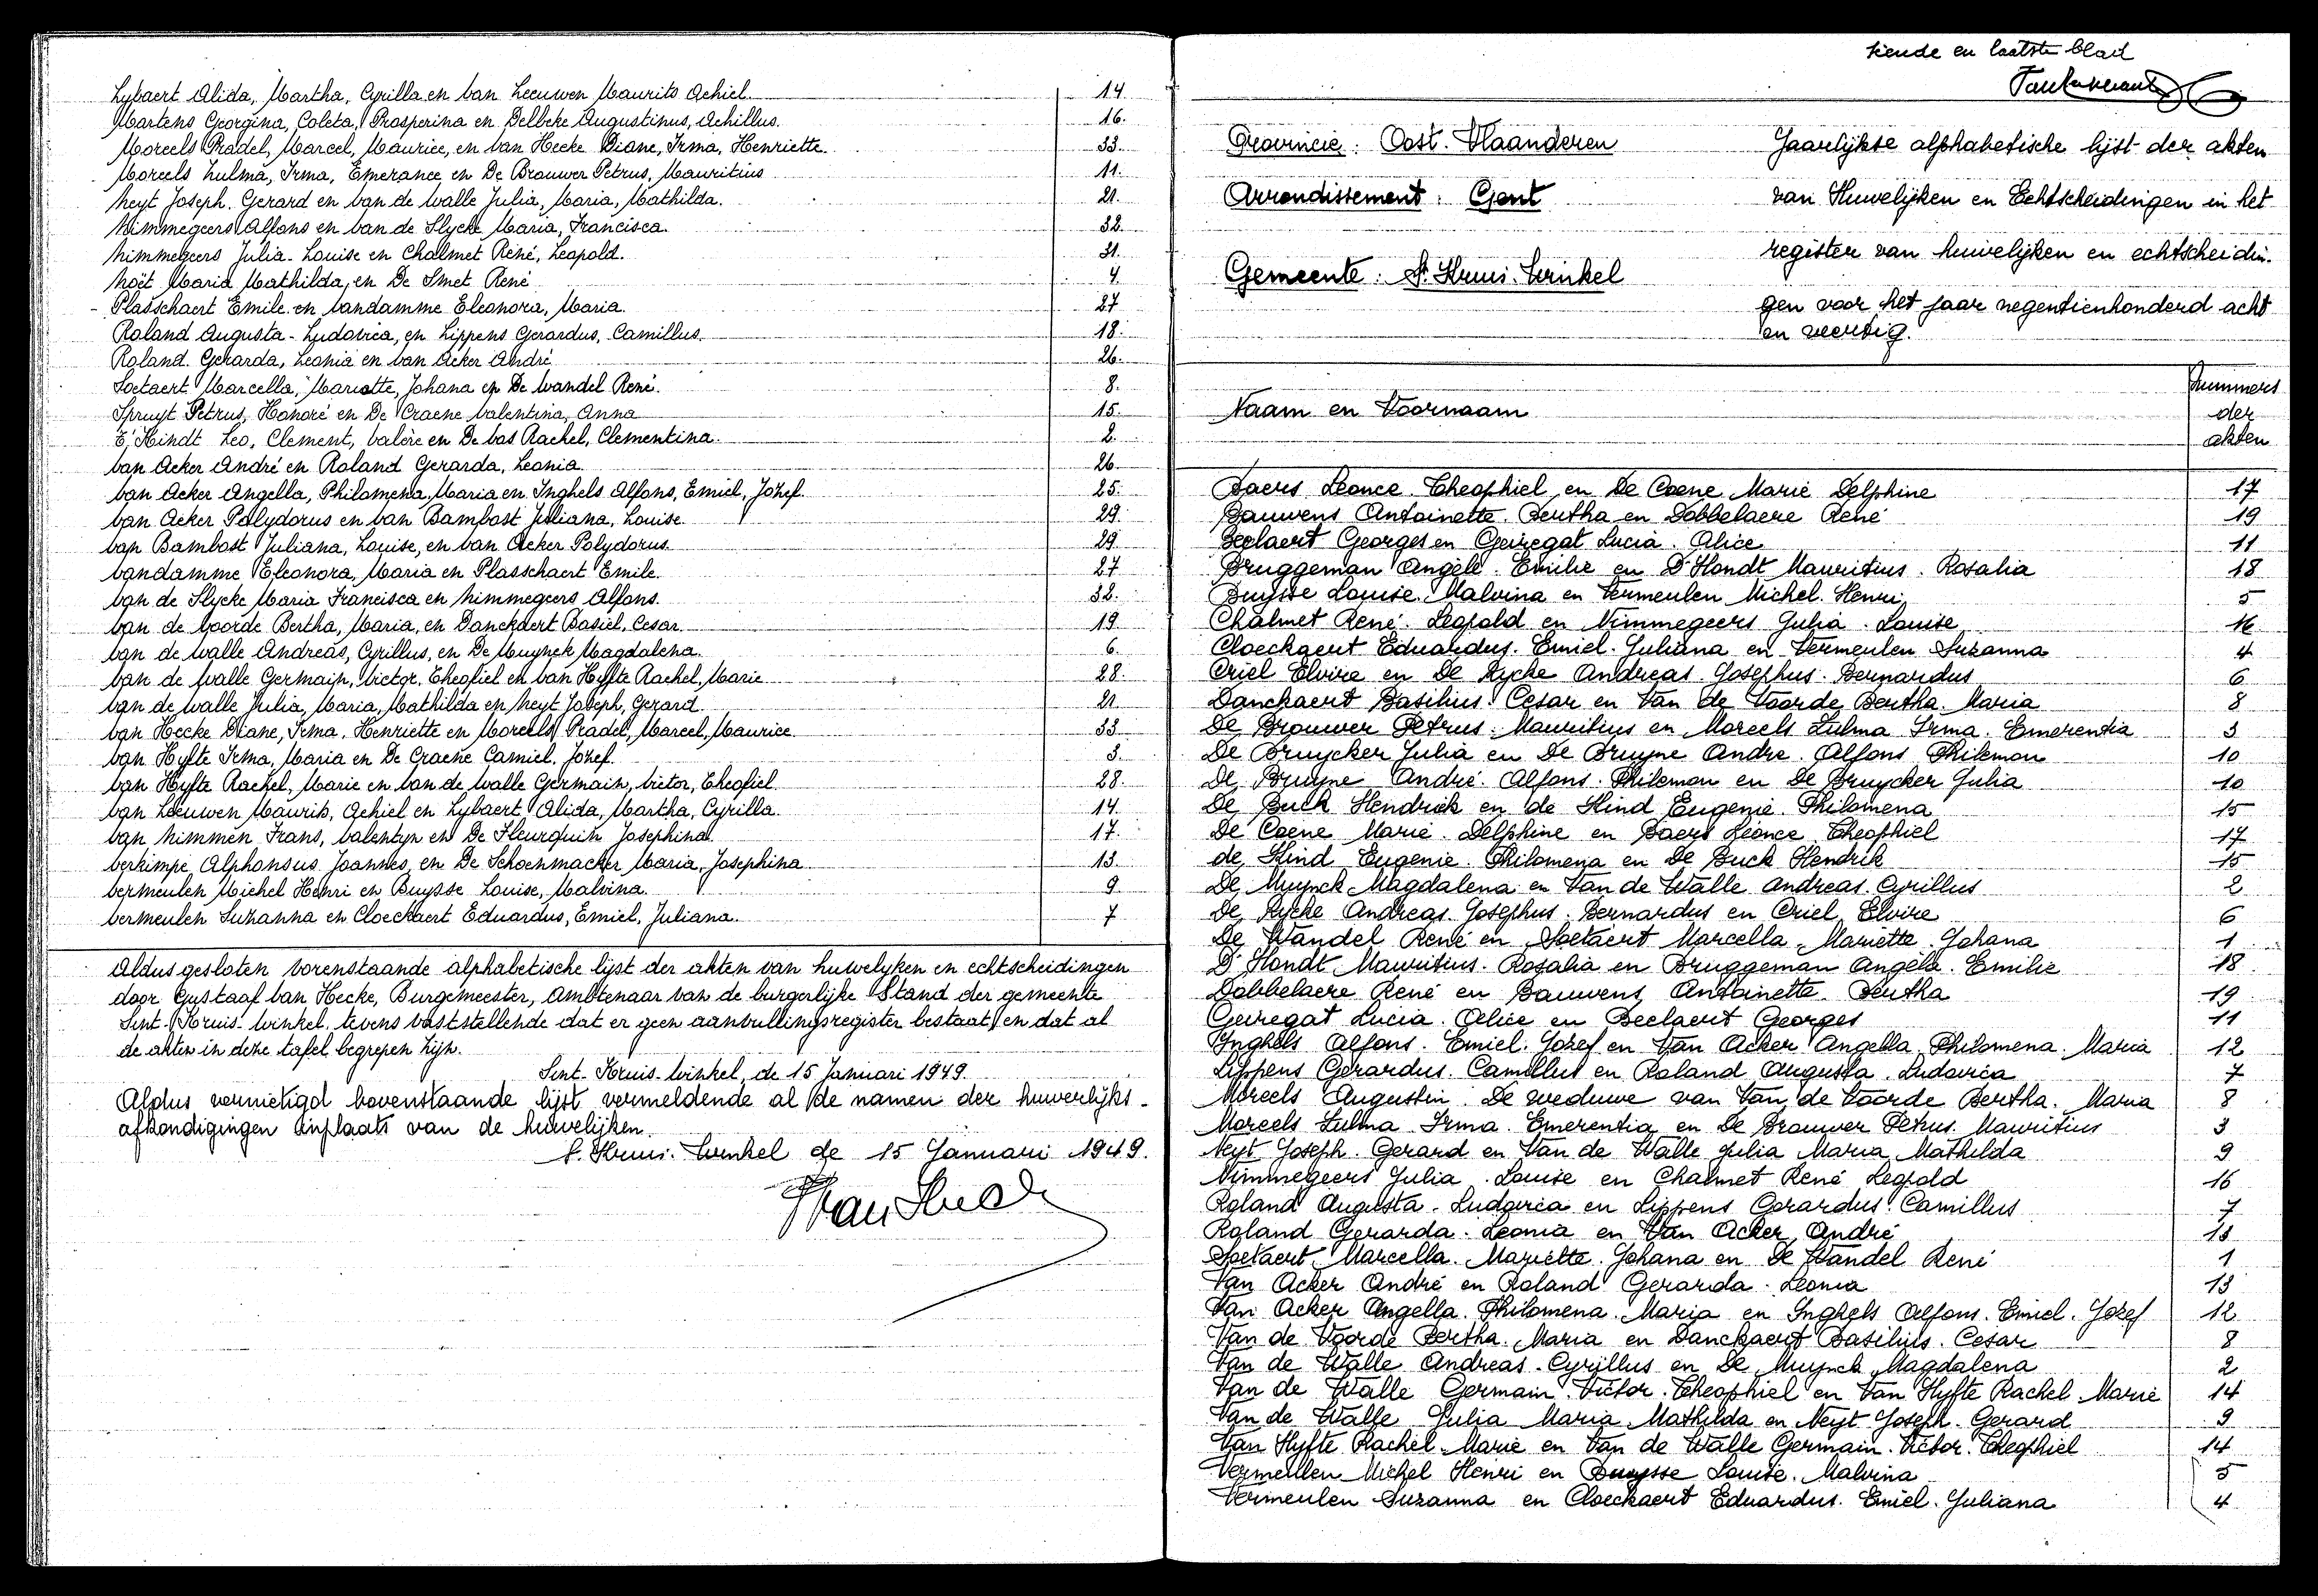 Lybaert Alida, Martha, Cyrilla en Van Leeuwen Maurits Achiel 14
Martens Georgina, Coleta, Prosperina en Delbeke Augustinus, Achillus. 16.
Moreels Pradel, Marcel, Maurice, en Van Hecke Diane, Irma, Henriette 33.
Moreels Zulma, Irma, Emerance en De Brouwer Petrus, Mauritius 11.
Neyt Joseph. Gerard en Van de Walle Julia, Maria, Mathilda. 21.
Nimmegeers Alfons en Van de Slycke Maria, Francisca. 32.
Nimmegeers Julia-Louise en Chalmet René, Leopold. 31.
Noët Maria Mathilda, en De Smet René 4.
Plasschaert Emile en Vandamme Eleonora, Maria. 27
Roland Augusta-Ludovica, en Lippens Gerardus, Camillus. 18.
Roland. Gerarda, Leonia en Van Acker André 26.
Soetaert Marcella, Mariette, Johana en De Wandel René. 8.
Spruyt Petrus, Honoré en De Craene Valentina, Anna 15.
T'Kindt Leo, Clement, Valère en De Vos Rachel, Clementina. 2.
Van Acker André en Roland Gerarda, Leonia 26.
Van Acker Angella, Philomena, Maria en Inghels Alfons, Emiel, Jozef. 25.
Van Acker Polydorus en Van Bambost Juliana, Louise 29.
Van Bambost Juliana, Louise, en Van Acker Polydorus 29.
Vandamme Eleonora, Maria en Plasschaert Emile. 27
Van de Slycke Maria Francisca en Nimmegeers Alfons. 32.
Van de Voorde Bertha, Maria, en Danckaert Basiel, Cesar. 19.
Van de Walle Andreas, Cyrillus, en De Muynck Magdalena. 6.
Van de Walle Germain, Victor, Theofiel en Van Hyfte Rachel, Marie 28.
Van de Walle Julia, Maria, Mathilda en Neyt Joseph, Gerard 21
Van Hecke Diane, Irma, Henriette en Moreels Pradel, Marcel, Maurice 33
Van Hyfte Irma, Maria en De Craene Camiel, Jozef. 3.
Van Hyfte Rachel, Marie en Van de Walle Germain, Victor, Theofiel. 28.
Van Leeuwen Maurits, Achiel en Lybaert Alida, Martha, Cyrilla. 14.
Van Nimmen Frans, Valentyn en De Fleurquin Josephina. 17.
Verkimpe Alphonsus Joannes, en De Schoenmacker Maria, Josephina 13.
Vermeulen Michel Henri en Buysse Louise, Malvina. 9
Vermeulen Suzanna en Cloeckaert Eduardus, Emiel, Juliana. 7
Aldus gesloten vorenstaande alphabetische lijst der akten van huwelyken en echtscheidingen
door Gustaaf Van Hecke, Burgemeester, Ambtenaar van de burgerlijke Stand der gemeente
Sint-Kruis-Winkel, tevens vaststellende dat er geen aanvullingsregister bestaat, en dat al
de akten in deze tafel begrepen zijn.
Sint-Kruis-Winkel, de 15 Januari 1949.
Aldus vernietigd bovenstaande lijst vermeldende al de namen der huwerlijks-
afkondigingen inplaats van de huwelijken.
S. Kruis-Winkel de 15 Januari 1949.
tiende en laatste blad
Provincie: Oost-Vlaanderen
Arrondissement: Gent
Gemeente: St. Kruis-Winkel
Jaarlijkse alphabetische lijst der akten
van Huwelijken en Echtscheidingen in het
register van huwelijken en echtscheidin-
gen voor het jaar negentienhonderd acht
en veertig.
Naam en Voornaam
Nummers
der
akten
Baers Leonce Theophiel en De Coene Marie Delphine 17
Bauwens Antoinette. Bertha en Dobbelaere René 19
Beelaert Georges en Geiregat Lucia. Alice 11
Bruggeman Angèle. Emilie en D'Hondt Mauritius. Rosalia 18
Buysse Louise. Malvina en Vermeulen Michel. Henri 5
Chalmet René. Leopold en Nimmegeers Julia. Louise 16
Cloeckaert Eduardus. Emiel. Juliana en Vermeulen Suzanna 4
Criel Elvire en De Rycke Andreas Josephus. Bernardus 6
Danckaert Basilius. Cesar en Van de Voorde Bertha. Maria 8
De Brouwer Petrus. Mauritius en Moreels Zulma Irma. Emerentia 3
De Bruycker Julia en De Bruyne Andre. Alfons Philemon 10
De Bruyne André. Alfons. Philemon en De Bruycker Julia 10
De Buck Hendrik en de Kind Eugenie. Philomena 15
De Coene Marie. Delphine en Baers Léonce Theophiel 17
de Kind Eugenie. Philomena en De Buck Hendrik 15
De Muynck Magdalena en Van de Walle Andreas. Cyrillus 2
De Rycke Andreas. Josephus. Bernardus en Criel Elvire 6
De Wandel René en Soetaert Marcella. Mariette. Johana 1
D'Hondt Mauritius. Rosalia en Bruggeman Angèle. Emilie 18
Dobbelaere René en Bauwens Antoinette. Bertha 19
Geiregat Lucia. Alice en Beelaert Georges 11
Inghels Alfons. Emiel. Jozef en Van Acker Angella. Philomena. Maria 12
Lippens Gerardus. Camillus en Roland Augusta. Ludovica 7
Moreels Augustin. De weduwe van Van de Voorde Bertha. Maria 8
Moreels Zulma Irma. Emerentia en De Brouwer Petrus. Mauritius 3
Neyt Joseph. Gerard en Van de Walle Julia Maria Mathilda 9
Nimmegeers Julia. Louise en Chalmet René Leopold 16
Roland Augusta. Ludovica en Lippens Gerardus. Camillus 7
Roland Gerarda. Leonia en Van Acker André 13
Soetaert Marcella. Mariette. Johana en De Wandel René 1
Van Acker André en Roland Gerarda. Leonia 13
Van Acker Angella. Philomena. Maria en Inghels Alfons. Emiel. Jozef 12
Van de Voorde Bertha. Maria en Danckaert Basilius. Cesar 8
Van de Walle Andreas. Cyrillus en De Muynck Magdalena 2
Van de Walle Germain. Victor. Theophiel en Van Hyfte Rachel Marie 14
Van de Walle Julia Maria Mathilda en Neyt Joseph. Gerard 9
Van Hyfte Rachel. Marie en Van de Walle Germain. Victor. Theophiel 14
Vermeulen Michel Henri en Buysse Louise. Malvina 5
Vermeulen Suzanna en Cloeckaert Eduardus. Emiel. Juliana 4